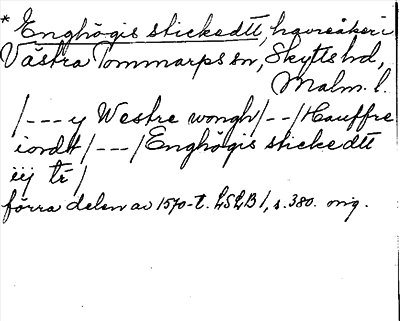 * Enghögis stickedtt, havreåker i
Västra Tommarps sn, Skytts hd,
Malm. l.
/---y Westre wongh/--/Hauffre
iordt/---/Enghögis stickedtt
iij tr/
förra delen av 1570-t. LSLB 1, s. 380. orig.